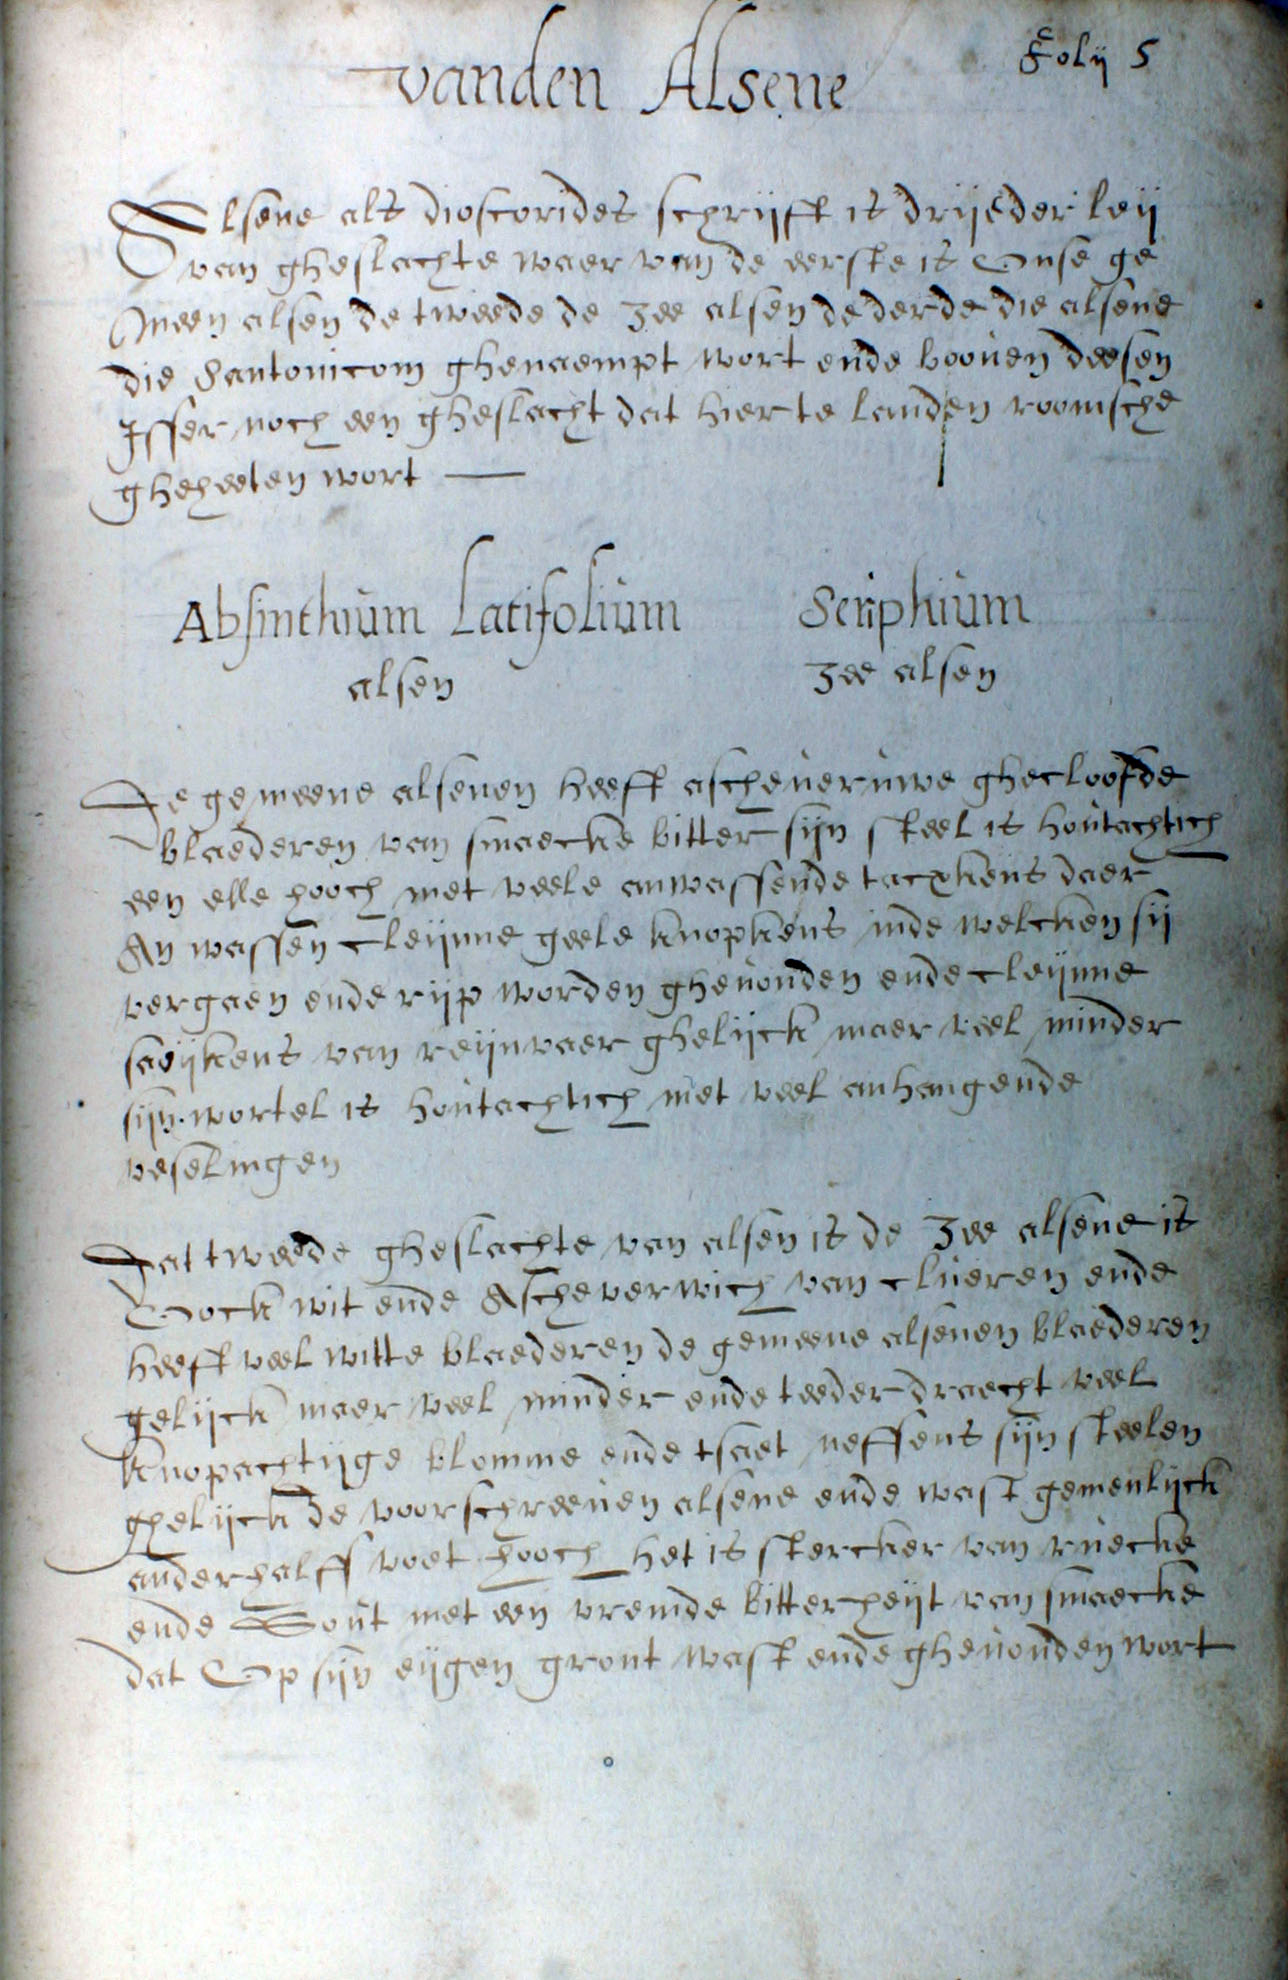 Folij 5
vanden Alsene
Alsene als dioscorides schrijfft is drijederleij
van gheslachte waer van de eerste is Onse ge
meen alsen de tweede de Zee alsen de derde die alsene
die Santonicom ghenaempt wort ende booven deesen
Isser noch een gheslacht dat hier te landen roomsche
gheheeten wort —
Absinthium Latifolium Seriphium
alsen Zee alsen
De gemeene alsenen heeft ascheveruwe ghecloofde
blaederen van smaecke bitter sijn steel is houtachtich
een elle hooch met veele anwassende tacxkens daer
An wassen cleijnne geele knopkens inde welcken sij
vergaen ende rijp worden ghevonden ende cleijnne
saeijkens van reijnvaer ghelijck maer veel minder
sijn wortel is houtachtich met veel anhangende
veselingen
Dat tweede gheslachte van alsen is de Zee alsene is
Oock wit ende Ascheverwich van clueren ende
heefft veel witte blaederen de gemeene alsenen blaederen
gelijck maer veel minder ende teeder draecht veel
knopachtijge blomme ende tsaet neffens sijn steelen
ghelijck de voorschreeven alsene ende wast gemenlijck
anderhalff voet hooch het is stercker van ruecke
ende Sout met een vremde bitterheijt van smaecke
dat Op sijn eijgen gront wast ende ghevonden wort